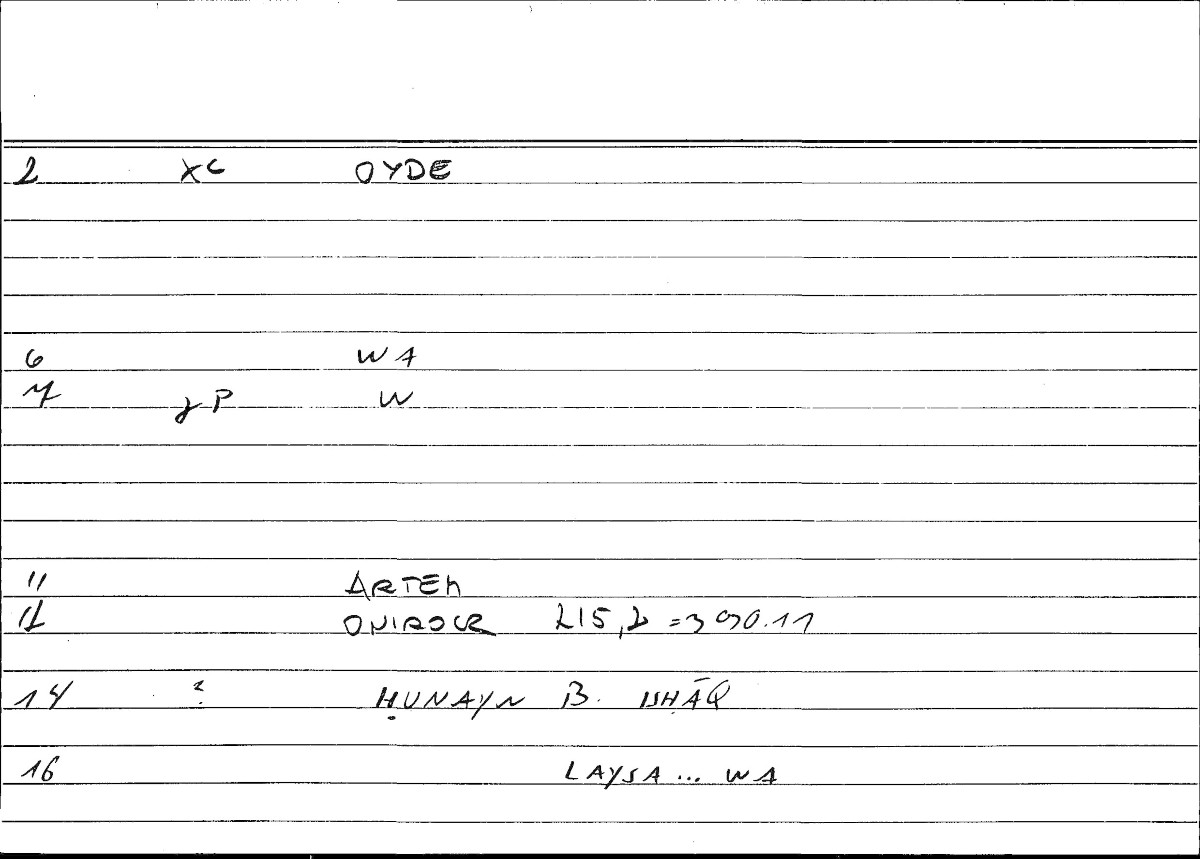 2 XC OYDE
6 WA
7 γP W
11 ARTEM
12 ONIROCR 215,2 = 390.11
14 ? ḤUNAYN B. ISḤĀQ
16 LAYSA ... WA